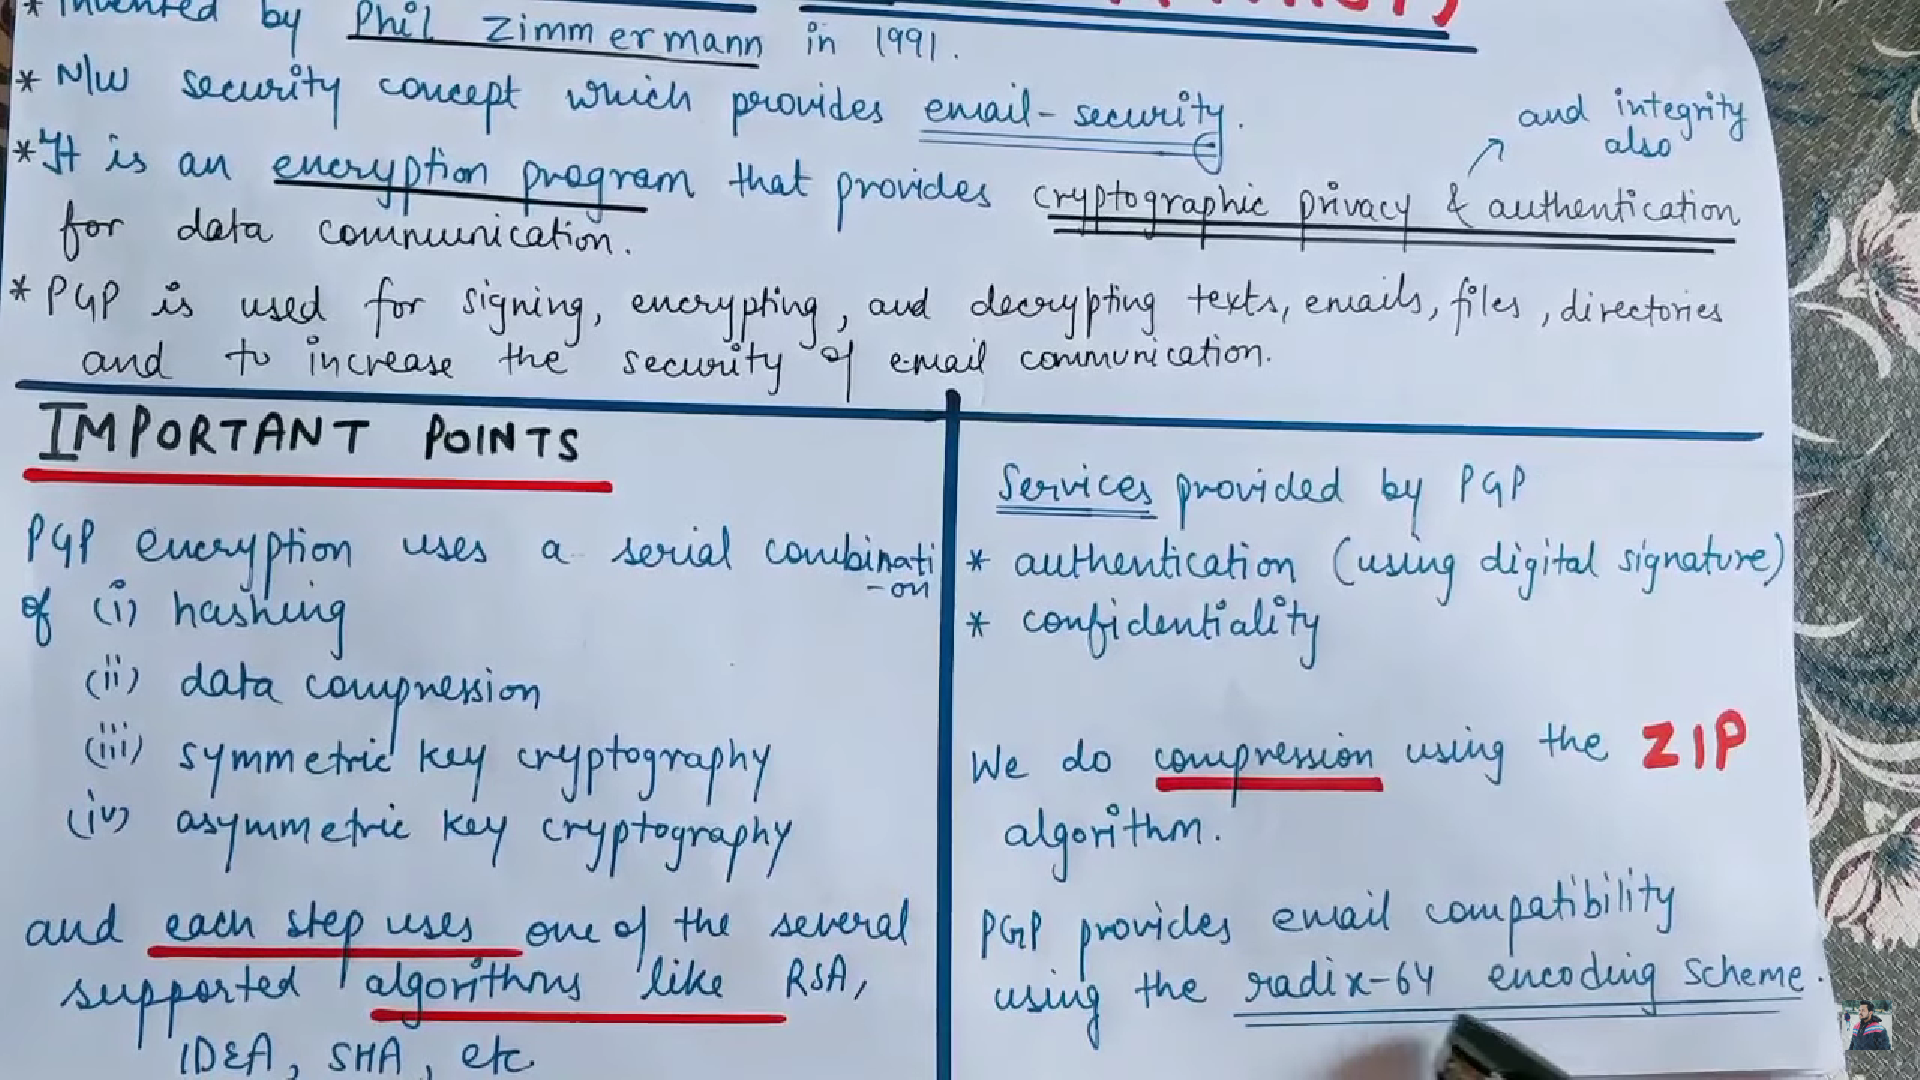 * Invented by Phil Zimmermann in 1991.
* N/W security concept which provides email-security.
and integrity
also
* It is an encryption program that provides cryptographic privacy & authentication
for data communication.
* PGP is used for signing, encrypting, and decrypting texts, emails, files, directories
and to increase the security of email communication.
IMPORTANT POINTS
PGP encryption uses a serial combinati
-on
of (i) hashing
(ii) data compression
(iii) symmetric key cryptography
(iv) asymmetric key cryptography
and each step uses one of the several
supported algorithms like RSA,
IDEA, SHA, etc
Services provided by PGP
* authentication (using digital signature)
* confidentiality
We do compression using the ZIP
algorithm.
PGP provides email compatibility
using the radix-64 encoding scheme.